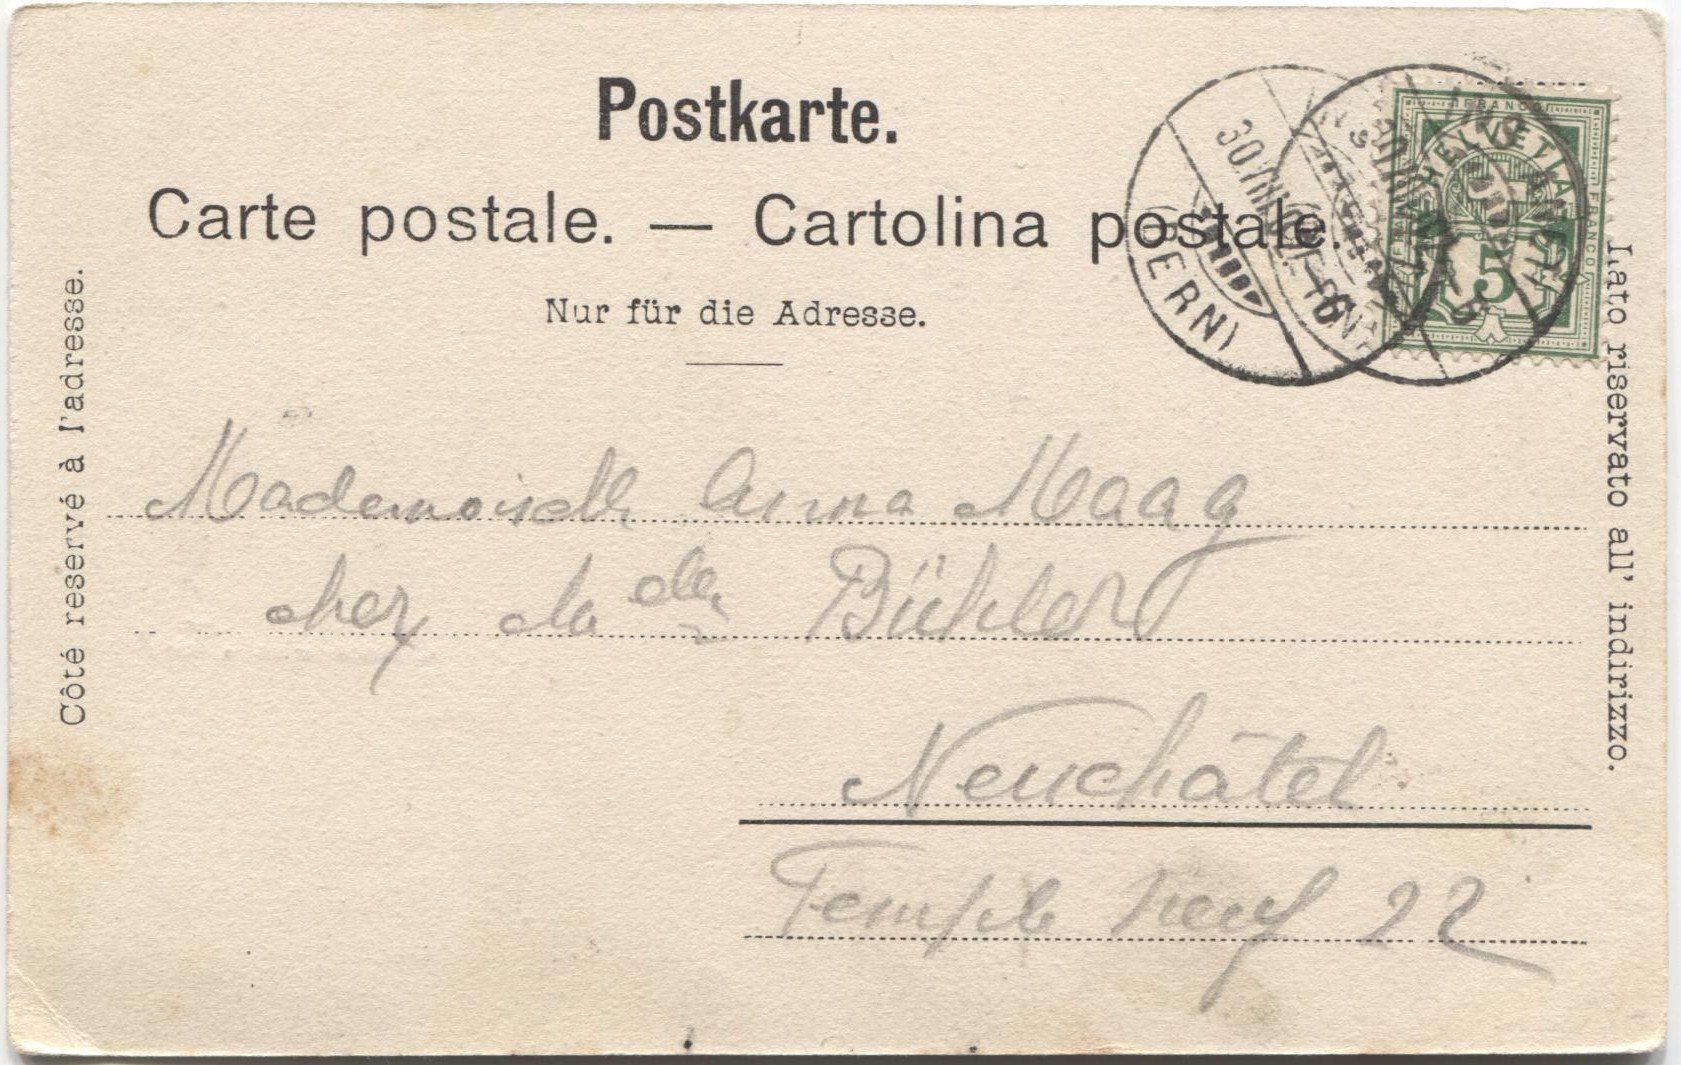 Postkarte.
Carte postale. — Cartolina postale.
Nur für die Adresse.
Côté reservé à l'adresse.
Lato riservato all' indirizzo.
FRANCO
HELVETIA
FRANCO
5
30.VIII.
(BERN)
Mademoiselle Anna Maag
chez
Bühler
Neuchâtel
Temple neuf 22